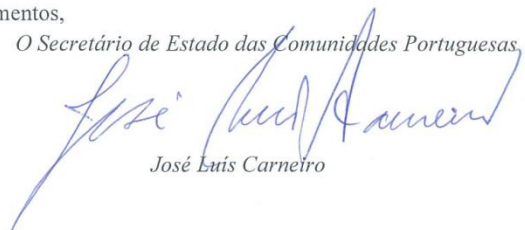 mentos,
O Secretário de Estado das Comunidades Portuguesas
José Luís Carneiro
José Luís Carneiro